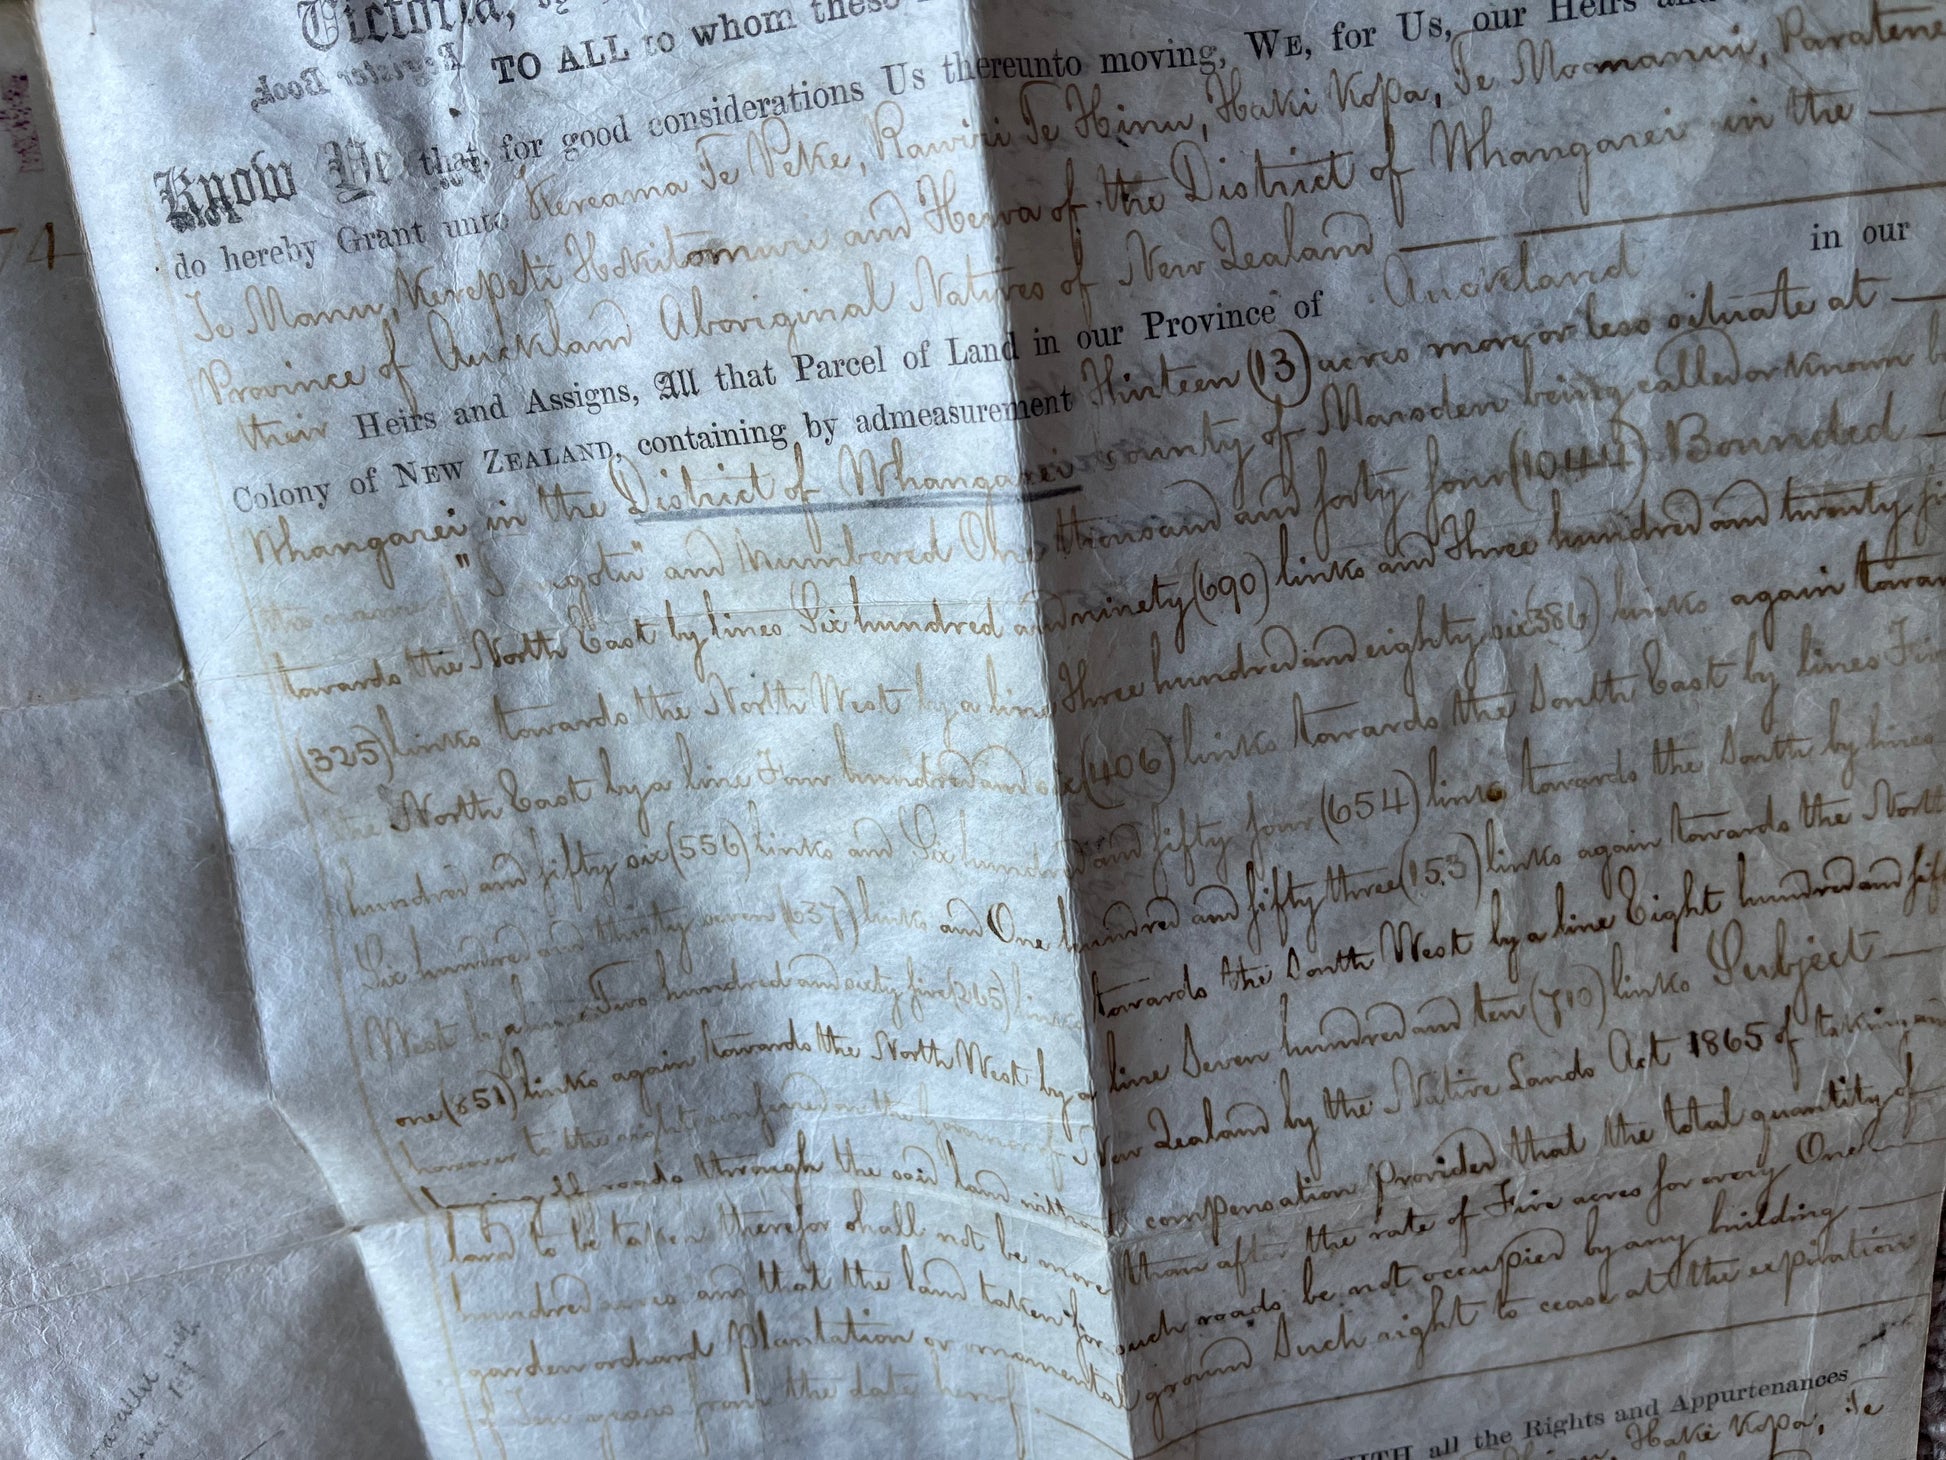 Victoria, by
Register Book,
TO ALL to whom these
Know Ye that, for good considerations Us thereunto moving, WE, for Us, our Heirs and
do hereby Grant unto Kereama Te Peke, Rawiri Te Hinu, Haki Kopa, Te Moananui, Paratene
Te Manu, and Hewa of the District of Whangarei in the
Province of Auckland Aboriginal Natives of New Zealand
their Heirs and Assigns, All that Parcel of Land in our Province of Auckland in our
Colony of NEW ZEALAND, containing by admeasurement Thirteen (13) acres more or less situate at
Whangarei in the District of Whangarei County of Marsden being called or known by
the name of and numbered One thousand and forty four (1044) Bounded
towards the North East by lines Six hundred and ninety (690) links and Three hundred and twenty
(325) links towards the North West by a line Three hundred and eighty six (386) links again towards
the North East by a line Four hundred and six (406) links towards the South East by lines Five
hundred and fifty six (556) links and Six hundred and fifty four (654) links towards the South by lines
Six hundred and thirty seven (637) links and One hundred and fifty three (153) links again towards the North
West by a line Two hundred and sixty five (265) links towards the South West by a line Eight hundred and fifty
one (851) links again towards the North West by a line Seven hundred and ten (710) links Subject
however to the right conferred on the Governor of New Zealand by the Native Lands Act 1865 of taking and
laying off roads through the said land without compensation Provided that the total quantity of
land to be taken therefor shall not be more than after the rate of Five acres for every One
hundred acres and that the land taken for such roads be not occupied by any building
garden orchard Plantation or ornamental ground Such right to cease at the expiration
of Ten years from the date hereof.
WITH all the Rights and Appurtenances
Haki Kopa, Te
74